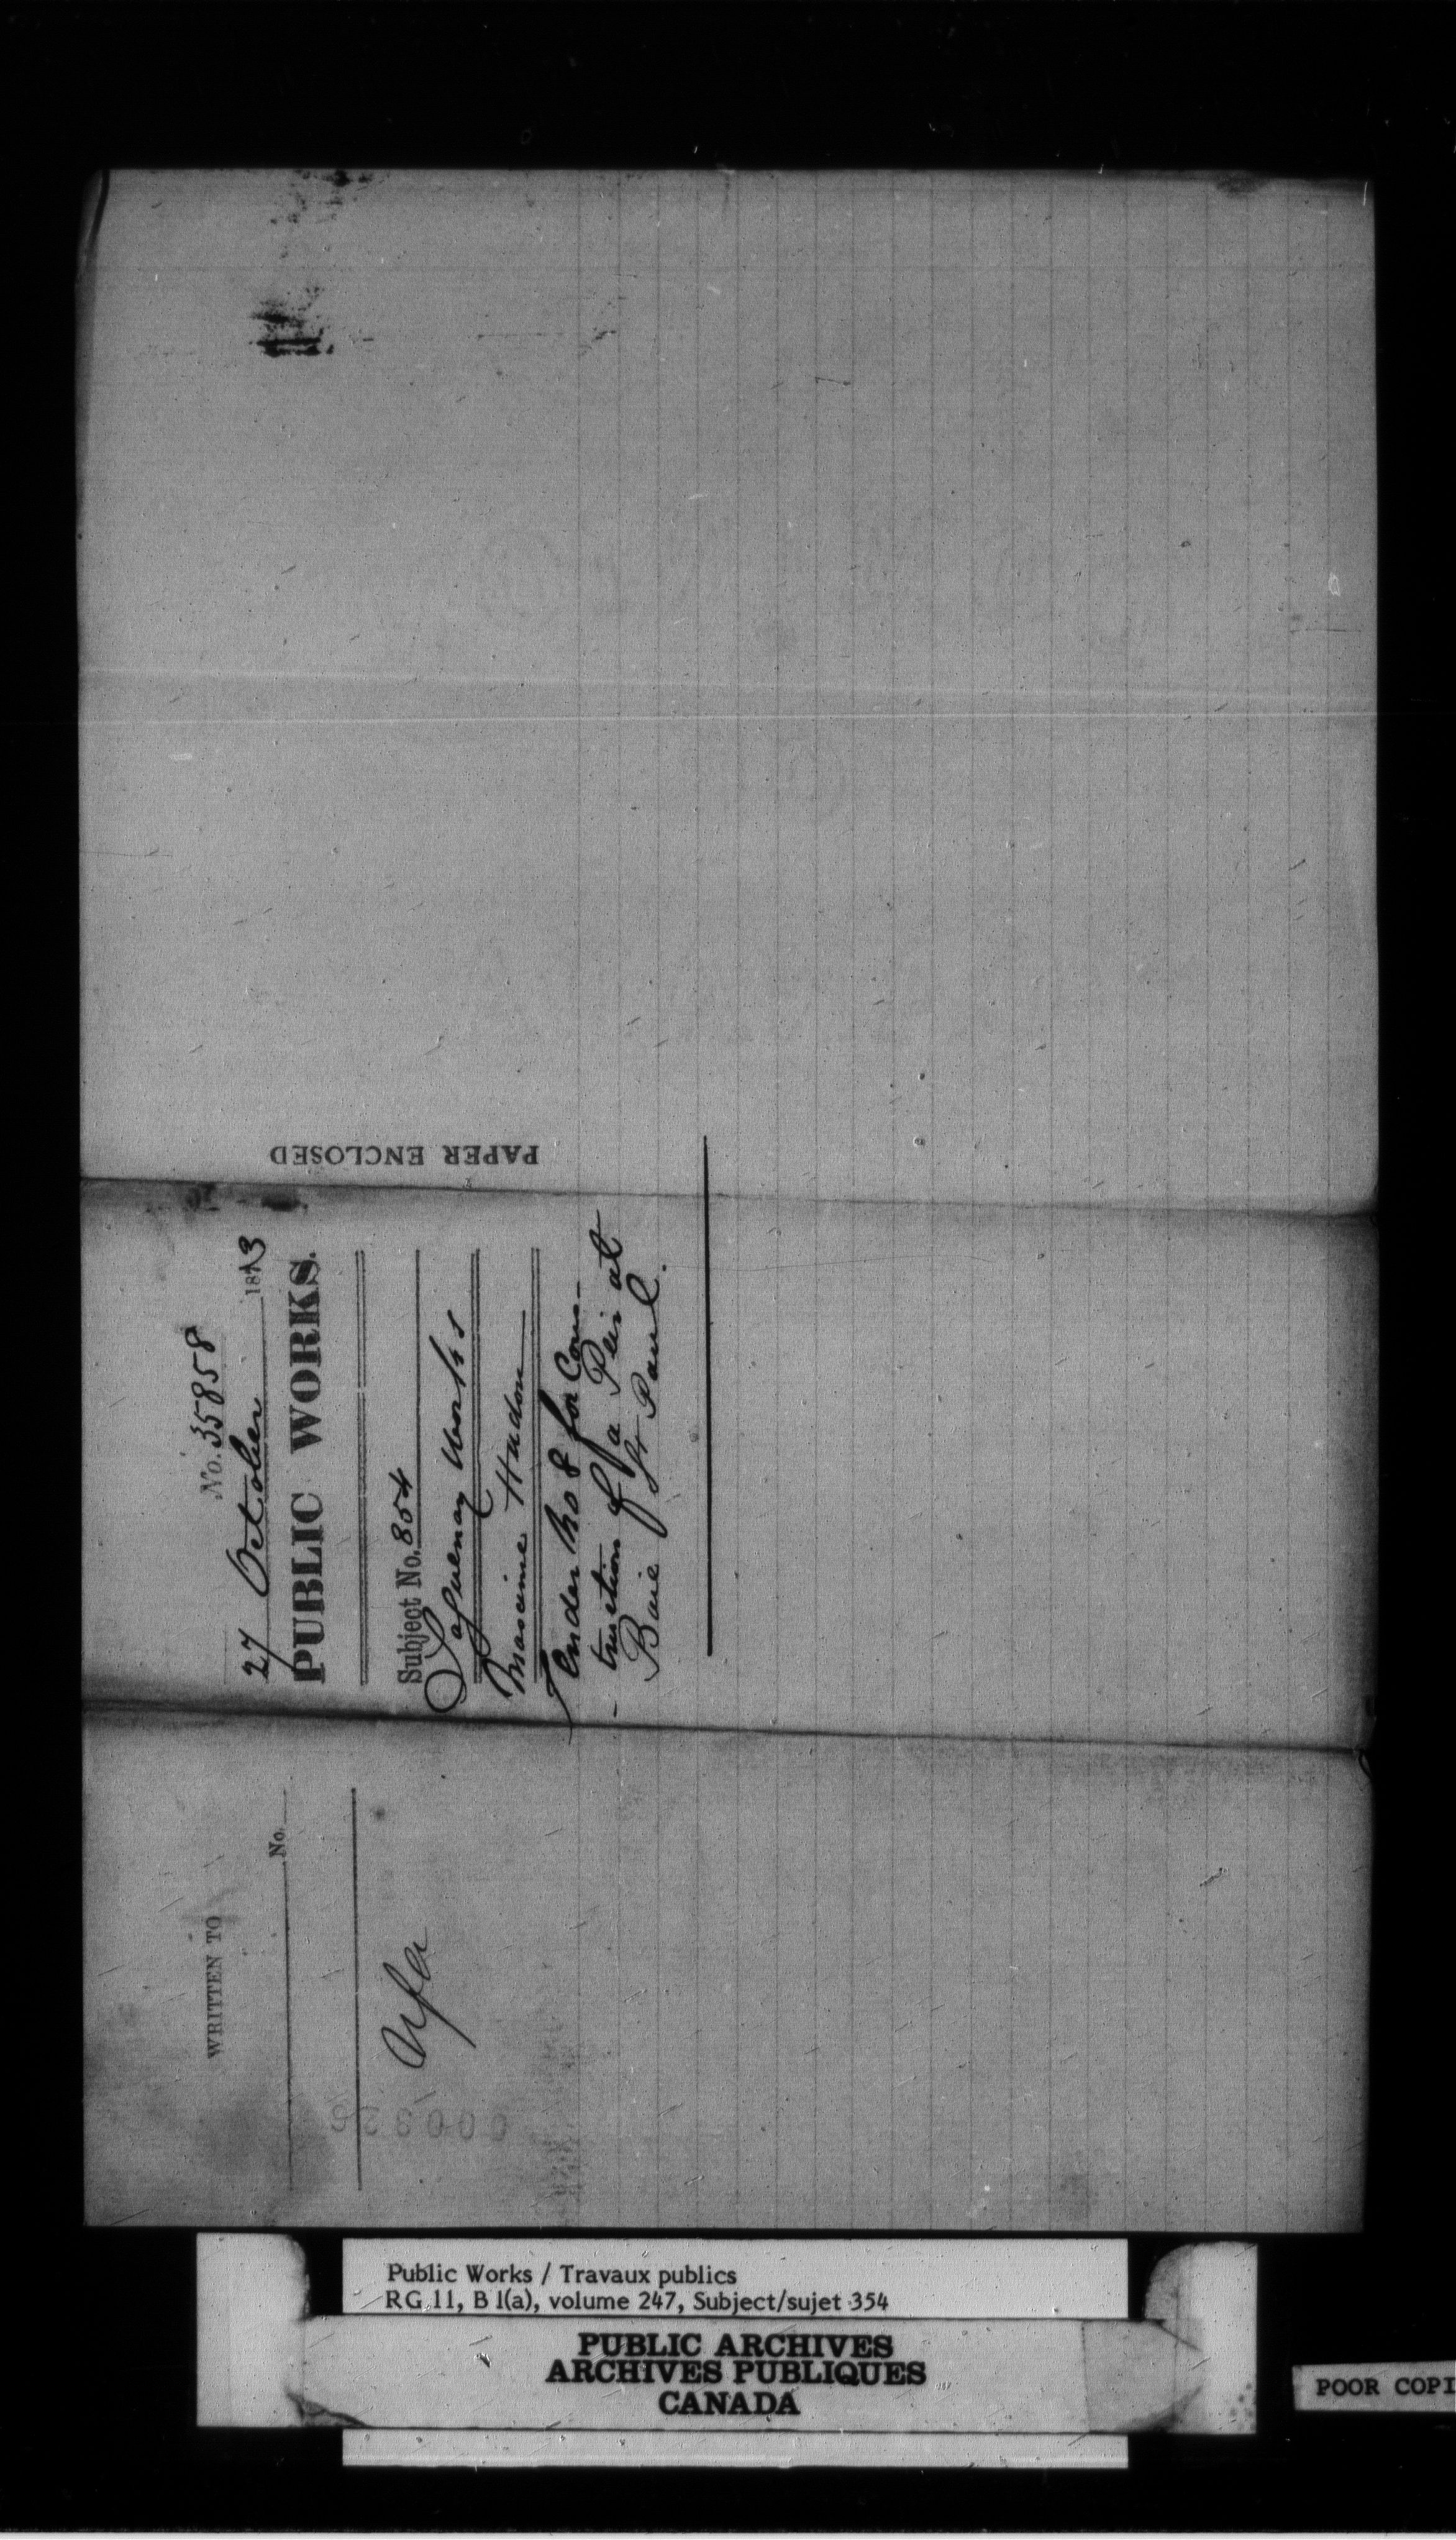 No. 35858
27 October 1873
PUBLIC WORKS.
Subject No. 854
Saguenay Works
Maxime Hudon
Tender No 8 for Cons-
-truction of a Peir at
Baie St Paul.
PAPER ENCLOSED
WRITTEN TO
No.
Public Works / Travaux publics
RG 11, B 1(a), volume 247, Subject/sujet 354
PUBLIC ARCHIVES
ARCHIVES PUBLIQUES
CANADA
POOR COPI